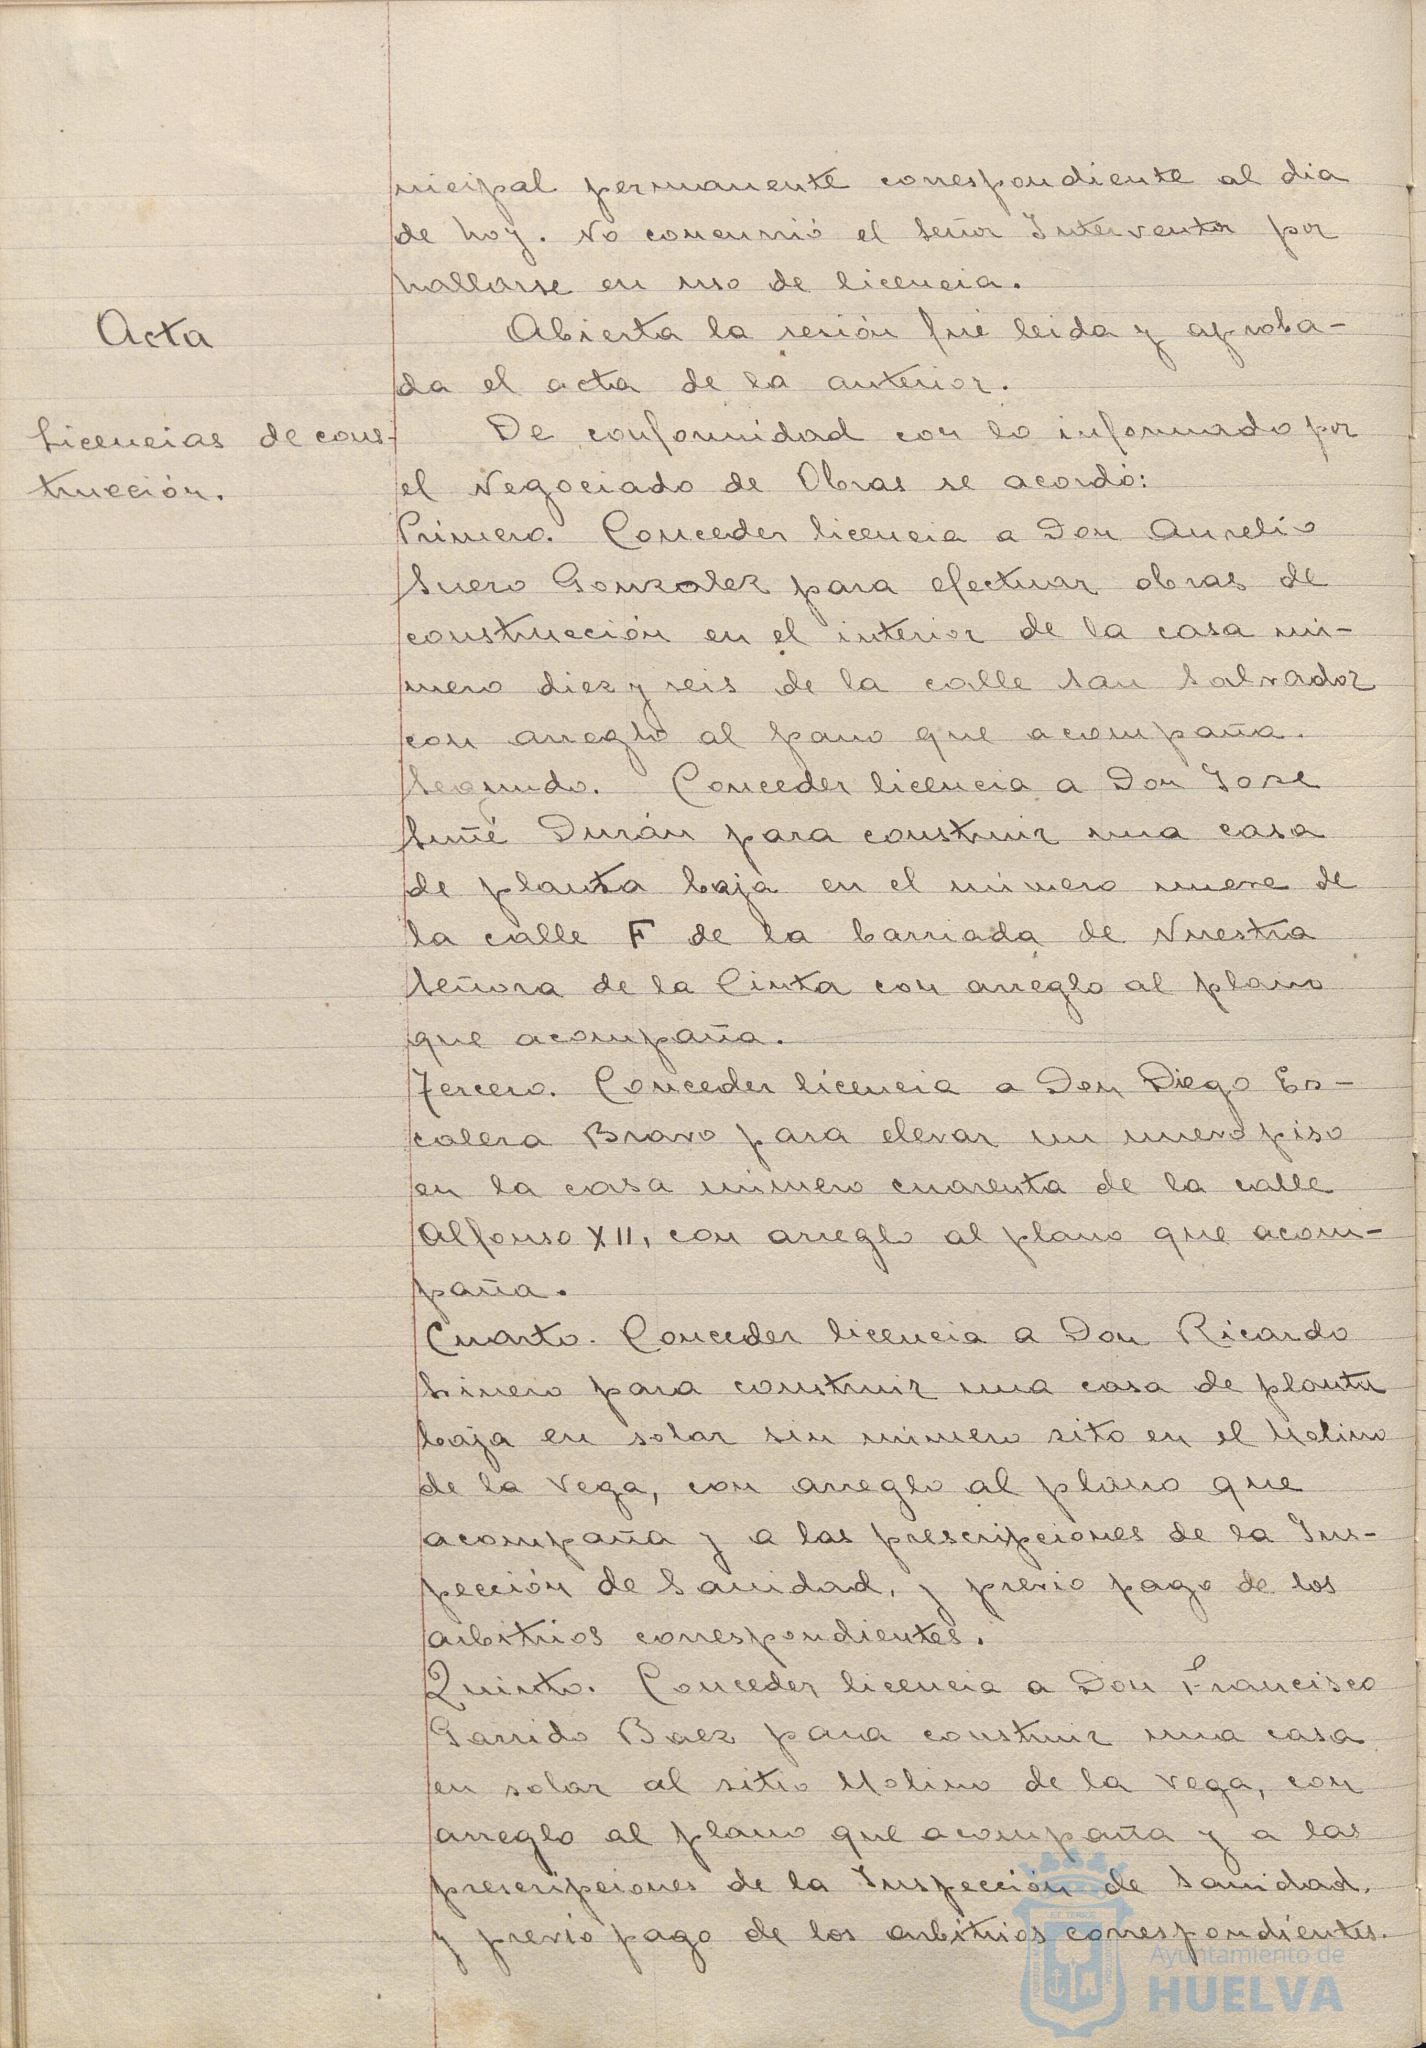 nicipal permanente correspondiente al dia
de hoy. No concurrió el Señor Interventor por
hallarse en uso de licencia.
Acta
Abierta la sesión fué leida y aproba-
da el acta de la anterior.
Licencias de cons-
trucción.
De conformidad con lo informado por
el Negociado de Obras se acordó:
Primero. Conceder licencia a Don Aurelio
Suero Gonzalez para efectuar obras de
construcción en el interior de la casa nú-
mero diez y seis de la calle San Salvador
con arreglo al pano que acompaña.
Segundo. Conceder licencia a Don José
Suñé Durán para construir una casa
de planta baja en el número nueve de
la calle F de la barriada de Nuestra
Señora de la Cinta con arreglo al plano
que acompaña.
Tercero. Conceder licencia a Don Diego Es-
calera Bravo para elevar un nuevo piso
en la casa número cuarenta de la calle
Alfonso XII, con arreglo al plano que acom-
paña.
Cuarto. Conceder licencia a Don Ricardo
Linero para construir una casa de planta
baja en solar sin número sito en el Molino
de la Vega, con arreglo al plano que
acompaña y a las prescripciones de la Ins-
pección de Sanidad, y previo pago de los
arbitrios correspondientes.
Quinto. Conceder licencia a Don Francisco
Garrido Baez para construir una casa
en solar al sitio Molino de la Vega, con
arreglo al plano que acompaña y a las
prescripciones de la Inspección de Sanidad,
y previo pago de los arbitrios correspondientes.
Ayuntamiento de
HUELVA